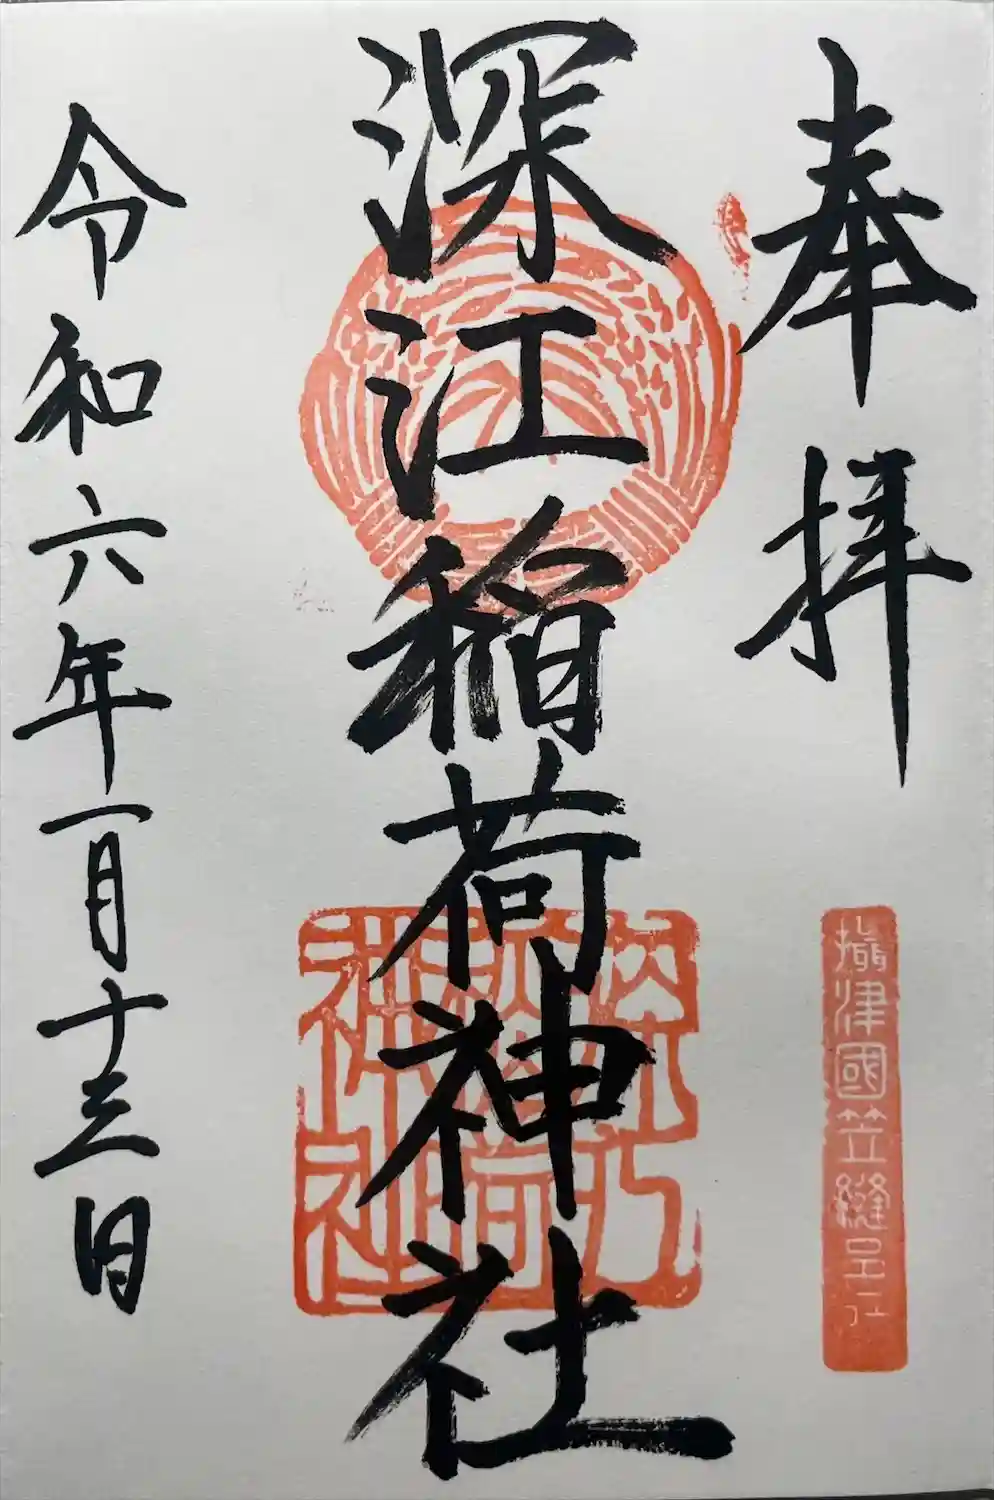 奉拝
攝津國笠縫邑
深江稲荷神社
深江稲荷神社
令和六年一月十三日